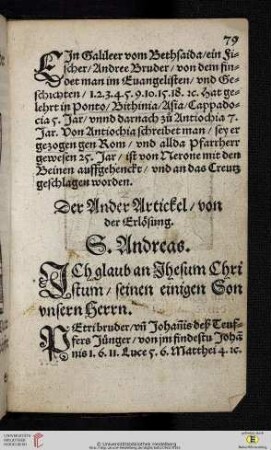 79
EIn Galileer vom Bethsaida / ein Fi-
scher / Andree Bruder / von dem fin-
det man im Euangelisten / vnd Ge-
schichten / 1.2.3.4.5.9.10.15.18. ꝛc. Hat ge-
lehrt in Ponto / Bithinia / Asia / Cappado-
cia 5. Jar / vnnd darnach zů Antiochia 7.
Jar. Von Antiochia schreibet man / sey er
gezogen gen Rom / vnd allda Pfarrherr
gewesen 25. Jar / ist von Nerone mit den
Beinen auffgehenckt / vnd an das Creutz
geschlagen worden.
Der Ander Artickel / von
der Erlösung.
S. Andreas.
ICh glaub an Jhesum Chri
stum / seinen einigen Son
vnsern Herrn.
PEtri bruder / vñ Johañis deß Teuf-
fers Jünger / von jm findestu Johā
nis 1. 6. 11. Luce 5. 6. Matthei 4. ꝛc.
UNIVERSITÄTSBIBLIOTHEK HEIDELBERG